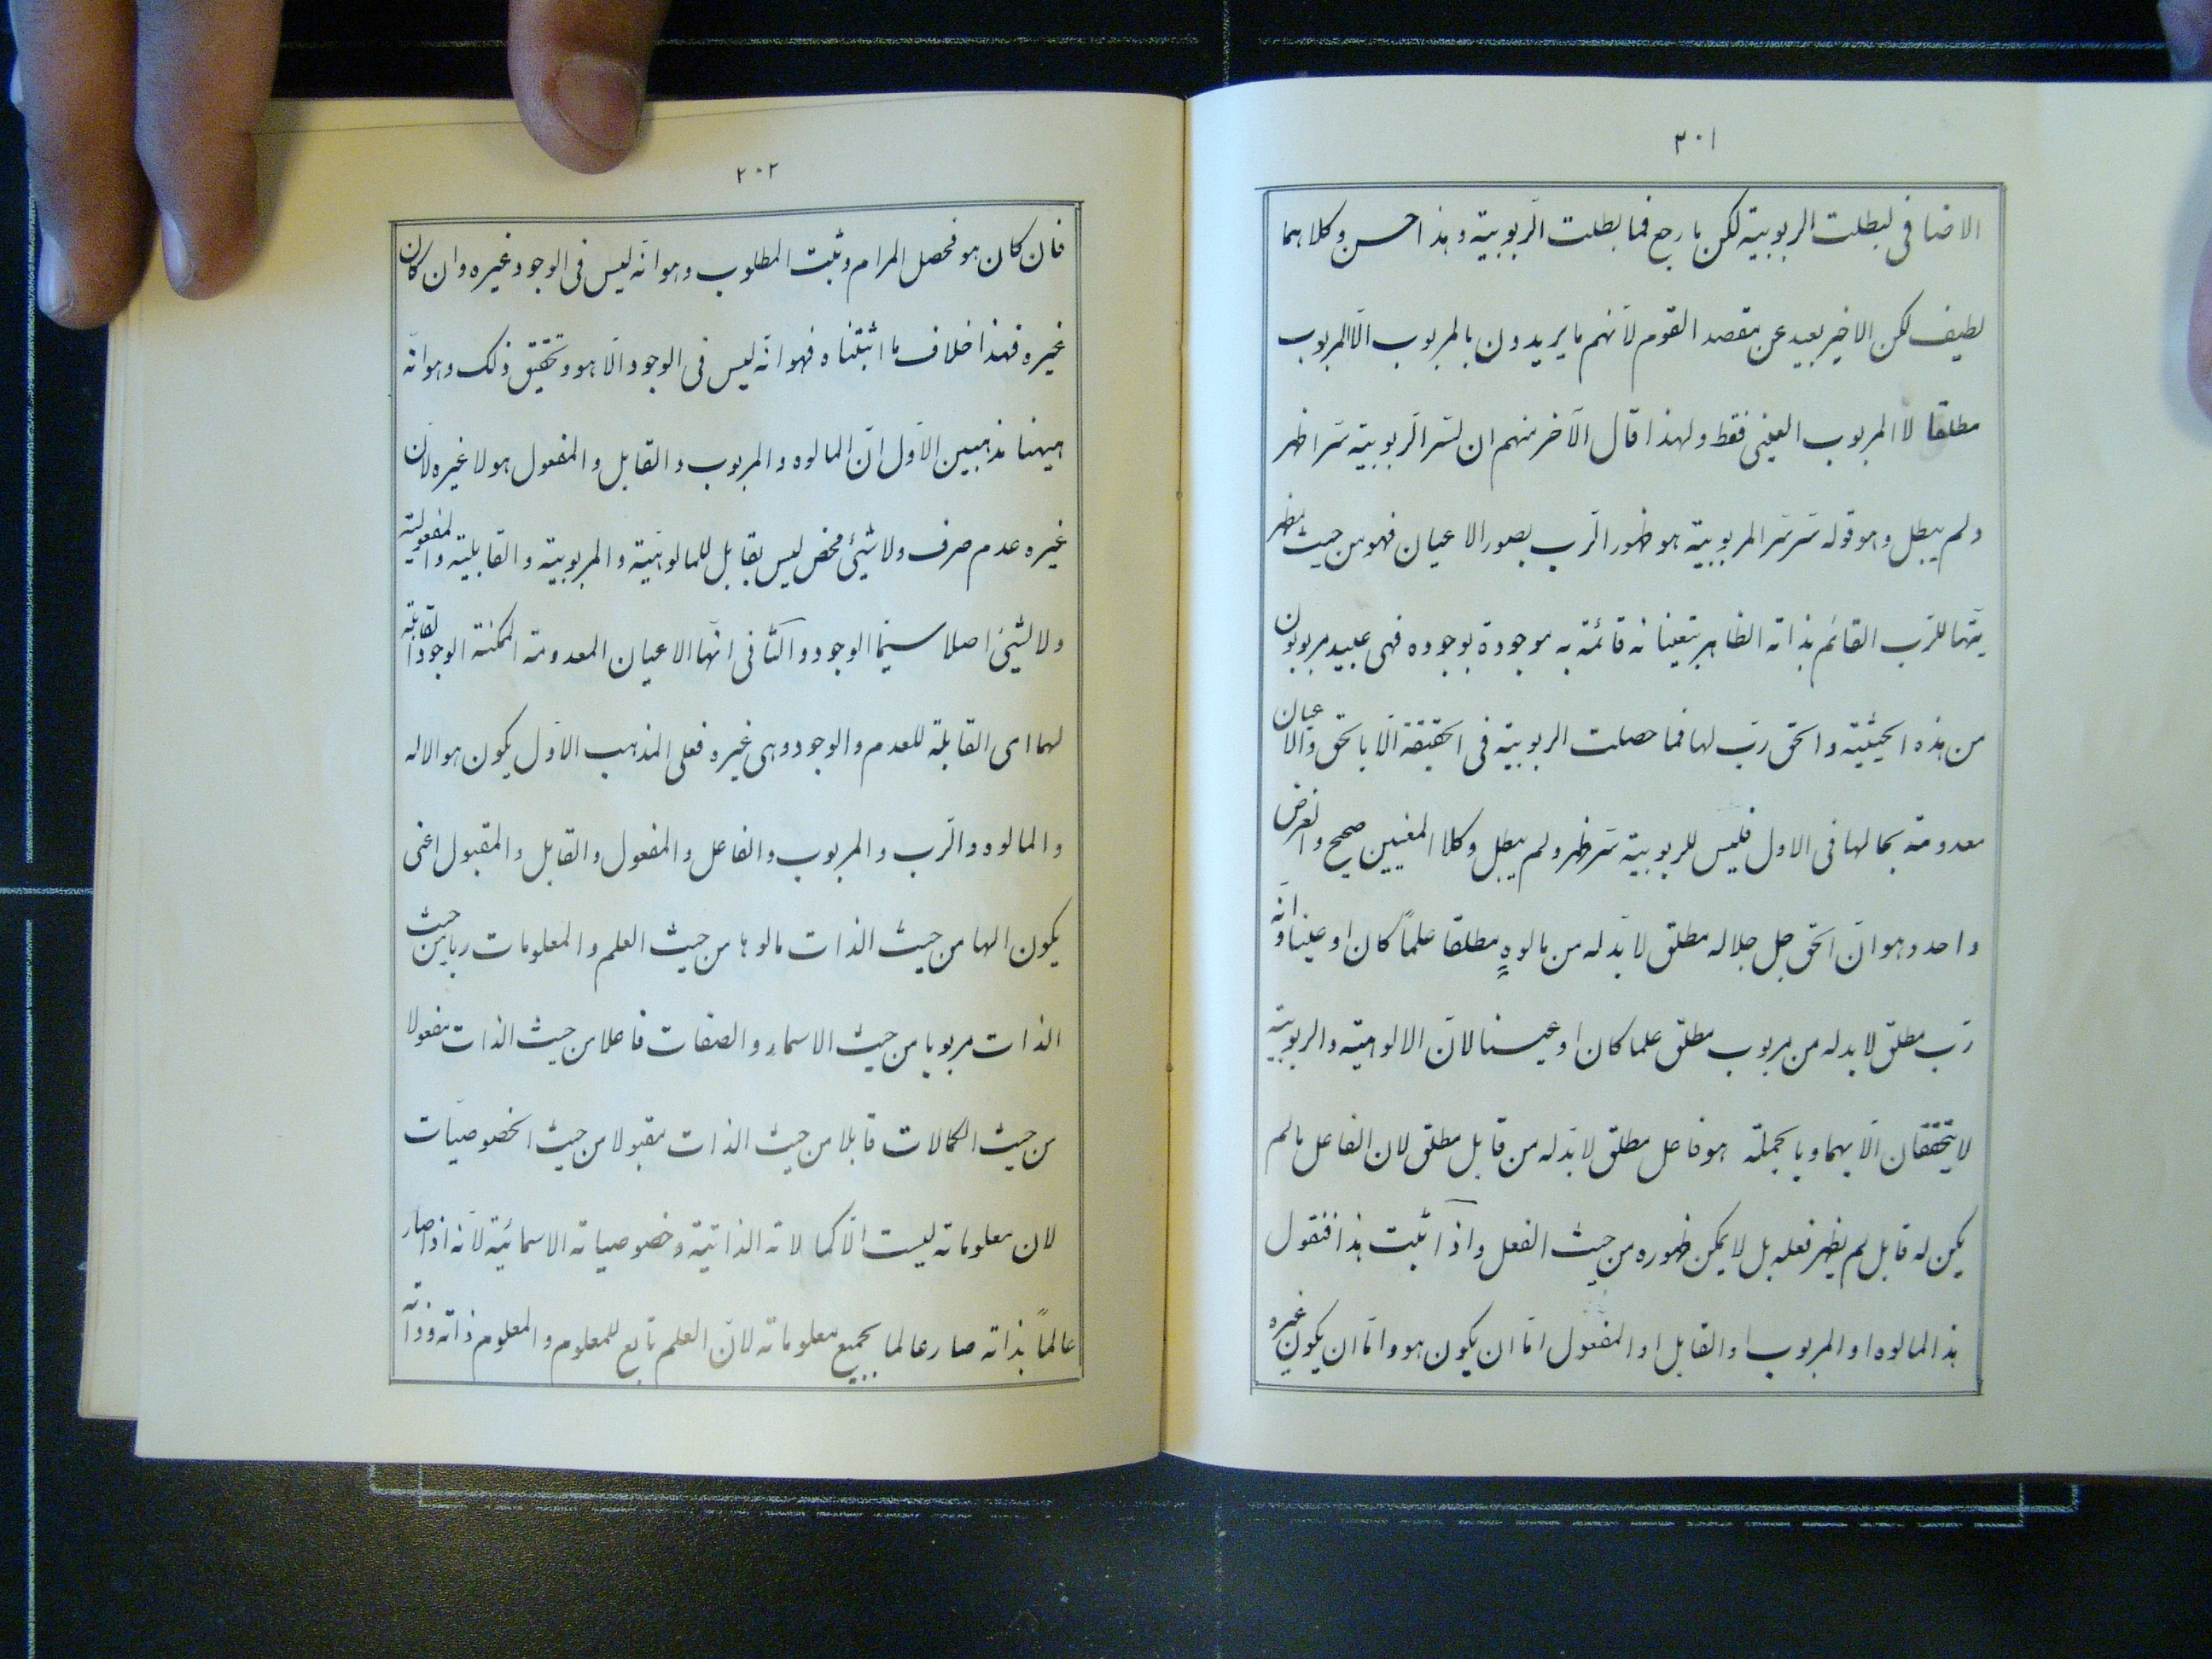 ٢٠١
الاضافى لبطلت الربوبية لكن ما رجع فما بطلت الرّبوبيّة و هذا حسن و كلاهما
لطيف لكن الاخير بعيد عن مقصد القوم لانّهم ما يريدون بالمربوب الّا المربوب
مطلقا لا المربوب العينى فقط و لهذا قال الآخر منهم ان لسّر الرّبوبيّة سّر اظهر
و لم يبطل و هو قوله سّر سّر المربوبية هو ظهور الرّب بصور الاعيان فهو من حيث مظهر
يتّها للرّب القائم بذاته الظاهر بتعيناته قائمة به موجودة بوجوده فهى عبيد مربوبون
من هذه الحيثية و الحق ربّ لها فما حصلت الربوبيّة فى الحقيقة الّا بالحق و الاعيان
معدومة بحالها فى الاول فليس للربوبية سّر ظهر و لم يبطل و كلا المعنيين صحيح و الغرض
واحد و هو انّ الحق جل جلاله مطلق لا بدّ له من مالوهٍ مطلقا علماً كان او عينا و انّه
ربّ مطلق لا بد له من مربوب مطلق علما كان او عينا لانّ الالوهيّة و الربوبية
لا يتحققان الّا بهما و بالجملة هو فاعل مطلق لا بدّ له من قابل مطلق لان الفاعل ما لم
يكن له قابل لم يظهر فعله بل لا يمكن ظهوره من حيث الفعل و اذا ثبت هذا فنقول
هذا المالوه او المربوب او القابل او المفعول امّا ان يكون هو و امّا ان يكون غيره
٢٠٢
فان كان هو فحصل المرام و ثبت المطلوب و هو انّه ليس فى الوجود غيره و ان كان
غيره فهذا خلاف ما اثبتناه فهو انّه ليس فى الوجود الّا هو و تحقيق ذلك و هو انّه
هيهنا مذهبين الاوّل انّ المالوه و المربوب و القابل و المفعول هو لا غيره لانّ
غيره عدم صرف و لا شيئ محض ليس بقابل للمالوهيّة و المربوبية و القابلية و المفعولية
و لا لشيئ اصلا سيّما الوجود و الثّانى انّها الاعيان المعدومة الممكنة الوجود القابلة
لهما اى القابلة للعدم و الوجود و هى غيره فعلى المذهب الاوّل يكون هو الاله
و المالوه و الرّب و المربوب و الفاعل و المفعول و القابل و المقبول اعنى
يكون الها من حيث الذات مالوها من حيث العلم و المعلومات ربا من حيث
الذات مربوبا من حيث الاسماء و الصفات فاعلا من حيث الذات مفعولا
من حيث الكمالات قابلا من حيث الذات مقبولا من حيث الخصوصيّات
لان معلوماته ليست الّا كمالاته الذاتيّة و خصوصياته الاسمائيّة لانّه اذا صار
عالماً بذاته صار عالما بجميع معلوماته لانّ العلم تابع للمعلوم و المعلوم ذاته و ذاته